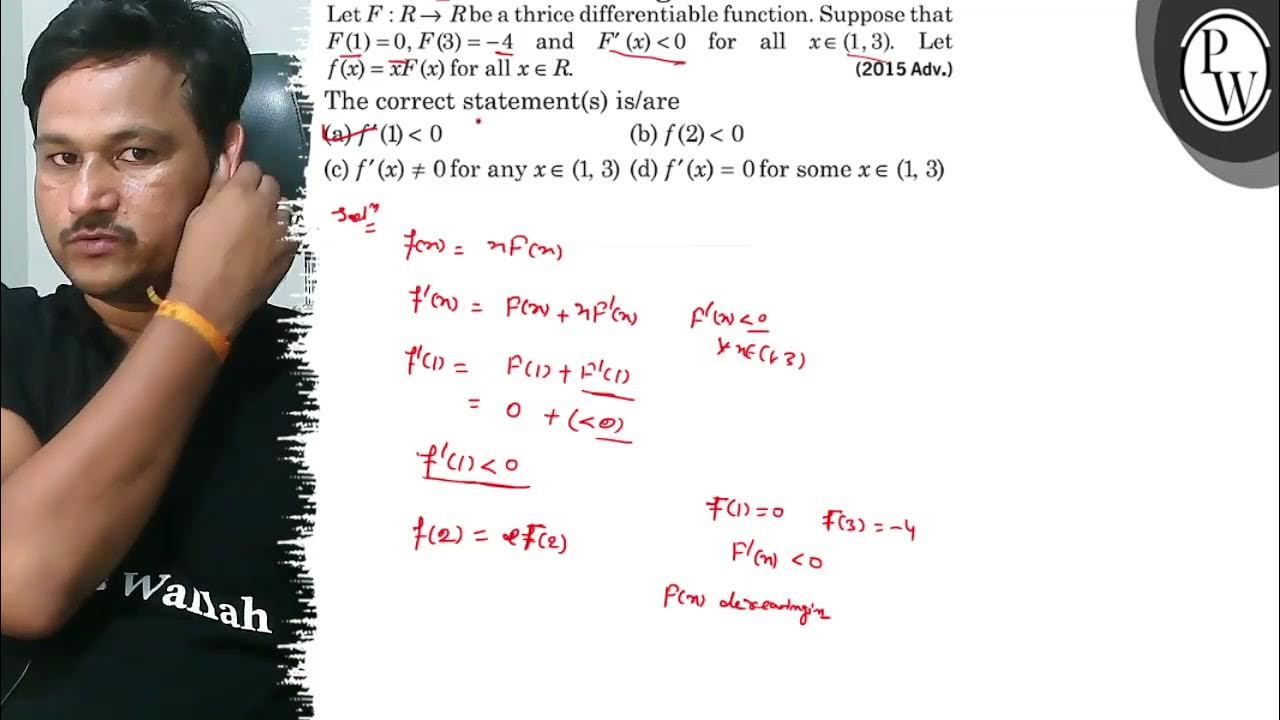 Let F : R → R be a thrice differentiable function. Suppose that
F(1) = 0, F(3) = −4 and F′(x) < 0 for all x ∈ (1, 3). Let
f(x) = xF(x) for all x ∈ R. (2015 Adv.)
The correct statement(s) is/are
(a) f′(1) < 0 (b) f(2) < 0
(c) f′(x) ≠ 0 for any x ∈ (1, 3) (d) f′(x) = 0 for some x ∈ (1, 3)
Solⁿ
f(x) = xF(x)
f′(x) = F(x) + xF′(x) F′(x) < 0
∀ x∈(1,3)
f′(1) = F(1) + F′(1)
= 0 + (<0)
f′(1) < 0
F(1) = 0 F(3) = −4
f(2) = 2F(2)
F′(x) < 0
F(x) decreasing in
PW
Wallah